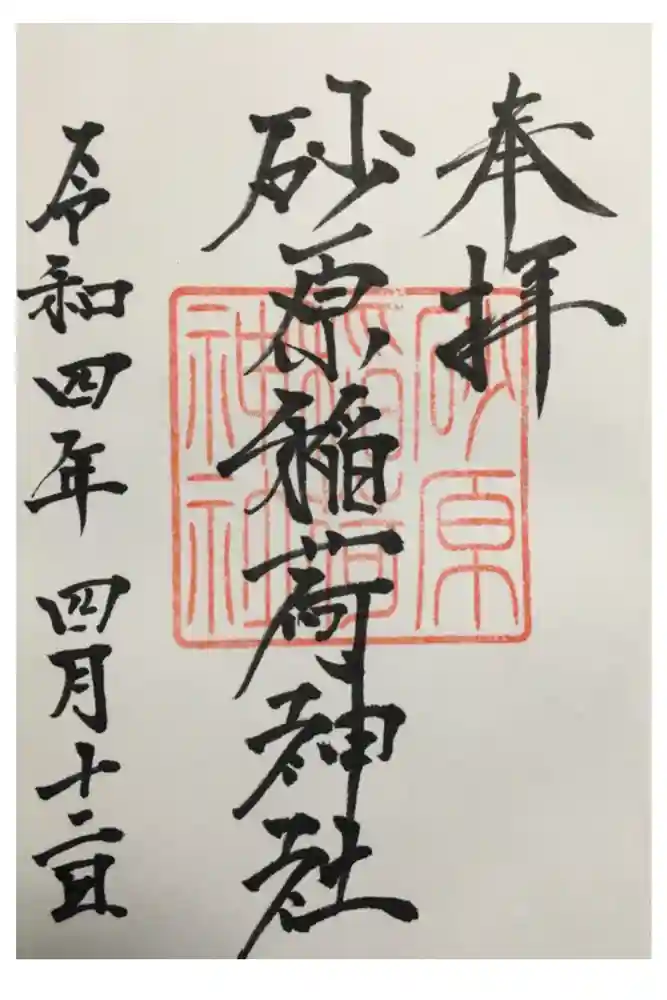 奉拝
砂原稲荷神社
令和四年 四月十二日
砂原
稲荷
神社